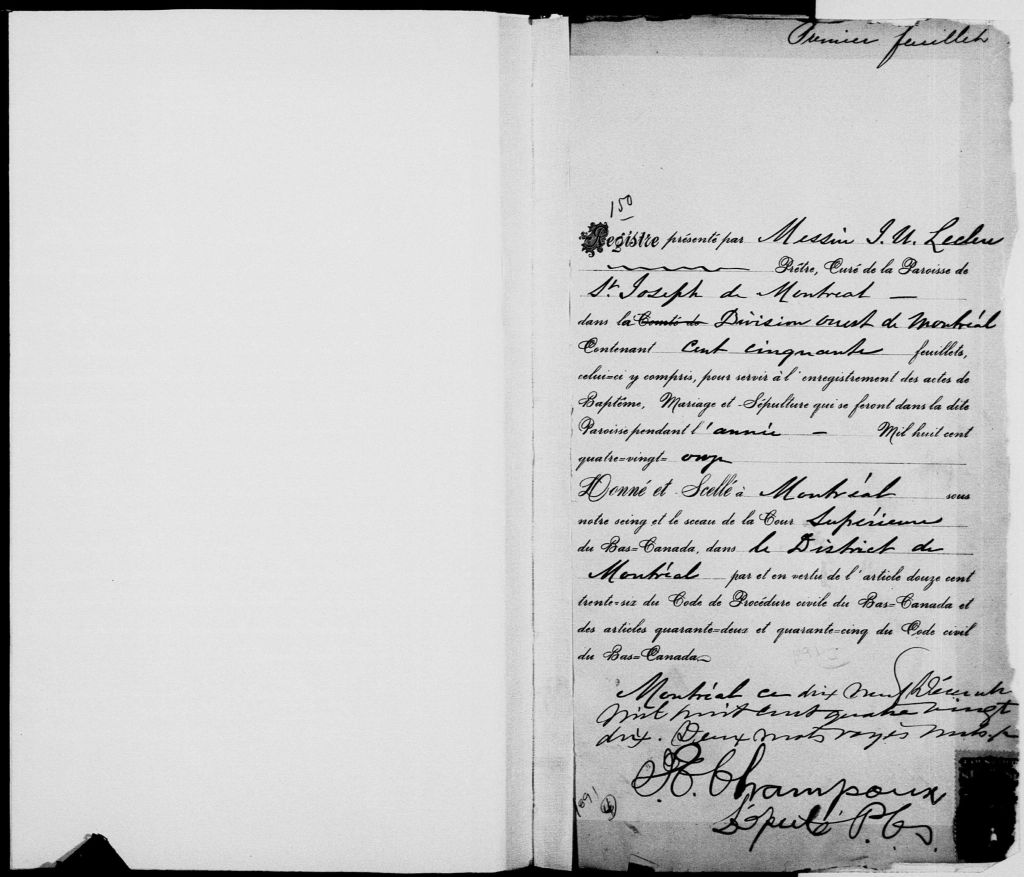 Premier feuillet
150
Registre présenté par Messire J. U. Leclerc
Prêtre, Curé de la Paroisse de
St. Joseph de Montreal —
dans la Comté de Division ouest de Montréal
Contenant Cent cinquante feuillets,
celui=ci y compris, pour servir à l'enregistrement des actes de
Baptême, Mariage et Sépulture qui se feront dans la dite
Paroisse pendant l'année — Mil huit cent
quatre=vingt= onze
Donné et Scellé à Montréal sous
notre seing et le sceau de la Cour Supérieure
du Bas=Canada, dans le District de
Montréal par et en vertu de l'article douze cent
trente=six du Code de Procédure civile du Bas=Canada et
des articles quarante=deux et quarante=cinq du Code civil
du Bas=Canada.
Montréal ce dix neuf Décembre
mil huit cent quatre vingt
dix. Deux mots rayés nuls.
Champoux
Député P. C. S.
1891